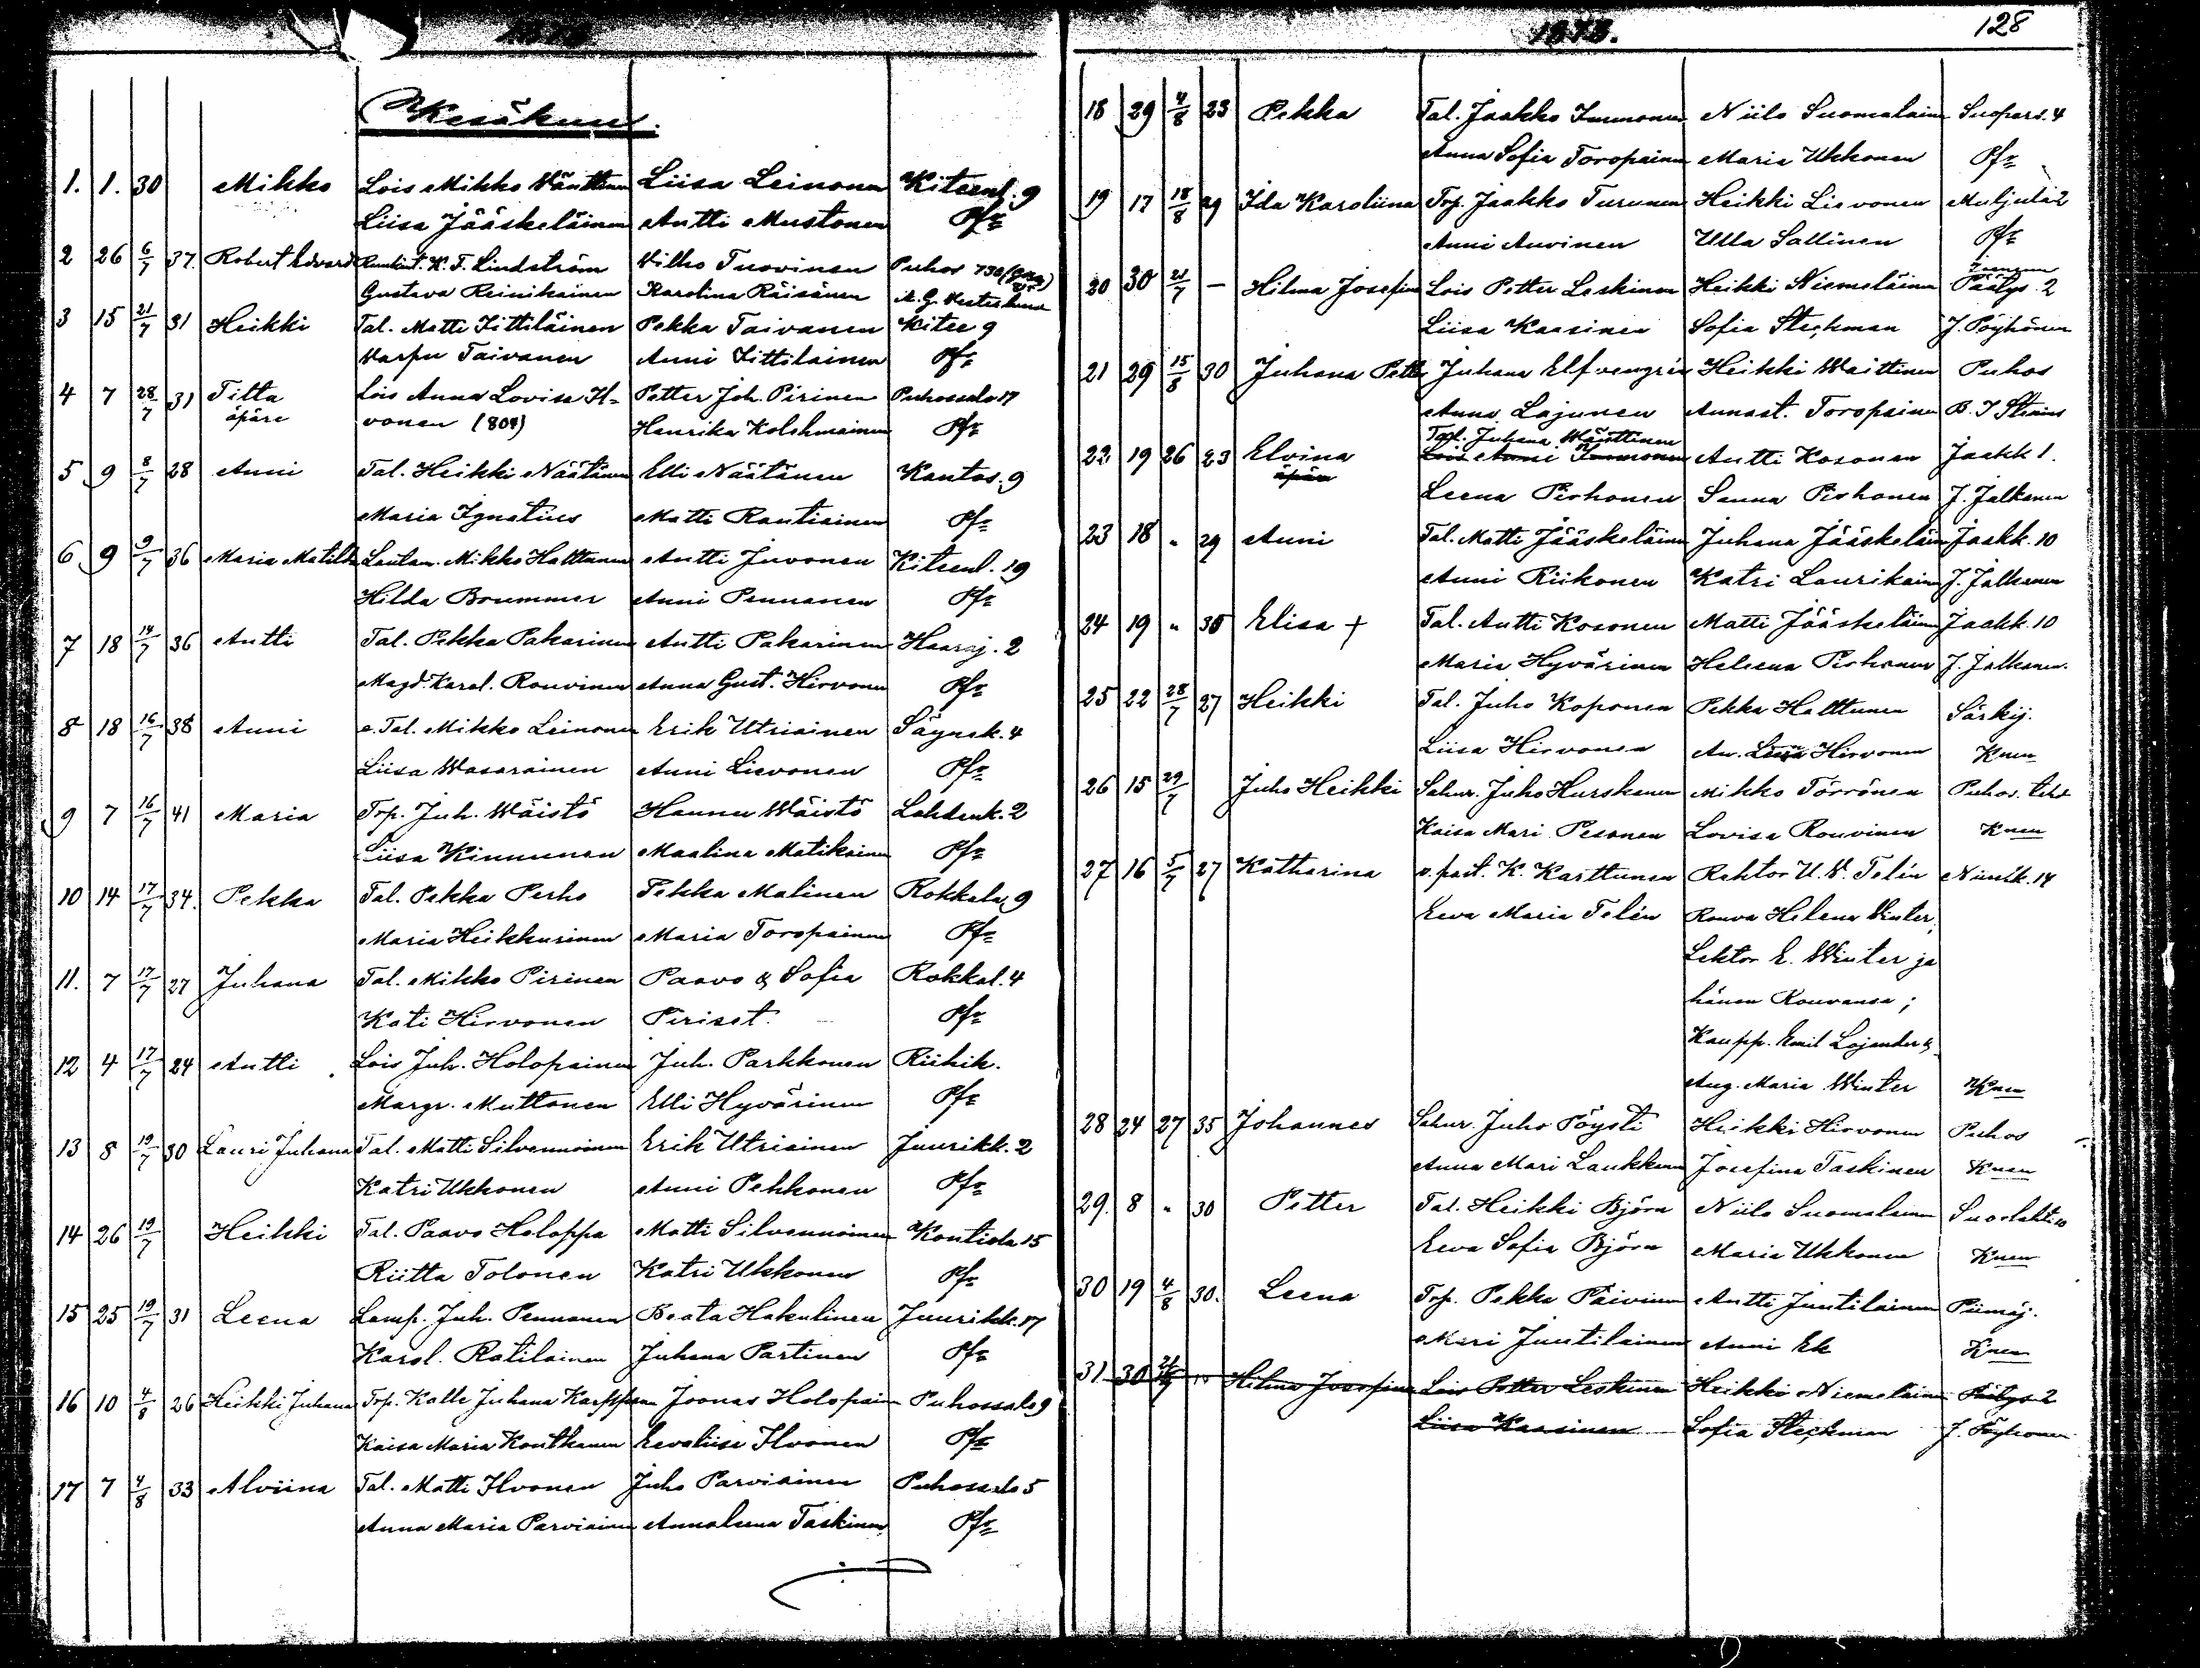 1878.
128
Kesäkuu.
1. 1. 30 Mikko Lois Mikko Vänttinen Liisa Leinonen Kiteenl. 9
Liisa Jääskeläinen Antti Mustonen Pfr
2 26 6/7 37 Robert Edvard K. F. Lindström Vilho Tuovinen Puhos
Gustava Reinikainen Karolina Räisänen A. G. Westerlund
3 15 21/7 31 Heikki Tal. Matti Tittiläinen Pekka Taivanen Kitee 9
Varpu Taivanen Anni Tittiläinen Pfr
4 7 28/7 31 Titta Lois Anna Lovisa H- Petter Joh. Pirinen Puhossalo 17
äpäre vonen (804) Henrika Kolehmainen Pfr
5 9 8/7 28 Anni Tal. Heikki Näätänen Elli Näätänen Kantos. 9
Maria Ignatius Matti Rautiainen Pfr
6 9 9/7 36 Maria Matilda Lautam. Mikko Halttunen Antti Juvonen Kiteenl. 19
Hilda Brummer Anni Pennanen Pfr
7 18 14/7 36 Antti Tal. Pekka Pakarinen Antti Pakarinen Haaraj. 2
Magd. Karol. Rouvinen Anna Gust. Hirvonen Pfr
8 18 16/7 38 Anni e. Tal. Mikko Leinonen Erik Utriainen Säynek. 4
Liisa Wasarainen Anni Lievonen Pfr
9 7 16/7 41 Maria Trp. Juh. Wäistö Hannu Wäistö Lahdenk. 2
Liisa Kinnunen Maalina Matikainen Pfr
10 14 17/7 34. Pekka Tal. Pekka Perho Pekka Malinen Rokkala 9
Maria Heikkurinen Maria Toropainen Pfr
11. 7 17/7 27 Juhana Tal. Mikko Pirinen Paavo & Sofia Rokkal. 4
Kati Hirvonen Piriset. Pfr
12 4 17/7 24 Antti Lois Juh. Holopainen Juh. Parkkonen Riihik.
Margr. Muttonen Elli Hyvärinen Pfr
13 8 19/7 30 Lauri Juhana Tal. Matti Silvennoinen Erik Utriainen Juurikk. 2
Katri Ukkonen Anni Pekkonen Pfr
14 26 19/7 Heikki Tal. Paavo Holoppa Matti Silvennoinen Kontiola 15
Riitta Tolonen Katri Ukkonen Pfr
15 25 19/7 31 Leena Lamp. Juh. Pennanen Beata Hakulinen Juurikk. 17
Karol. Ratilainen Juhana Partinen Pfr
16 10 4/8 26 Heikki Juhana Trp. Kalle Juhana Karppanen Joonas Holopainen Puhossalo 9
Kaisa Maria Kontkanen Eevaliisa Ilvonen Pfr
17 7 4/8 33 Alviina Tal. Matti Ilvonen Juho Parviainen Puhossalo 5
Anna Maria Parviainen Annaleena Taskinen Pfr
1878.
18 29 4/8 23 Pekka Tal. Jaakko Immonen Niilo Suomalainen Suopars. 4
Anna Sofia Toropainen Maria Ukkonen Pfr
19 17 18/8 29 Ida Karoliina Trp. Jaakko Turunen Heikki Lievonen Muljula 2
Anni Auvinen Ulla Sallinen Pfr
20 30 21/7 — Hilma Josefina Lois Petter Leskinen Heikki Niemeläinen Päätys 2
Liisa Kaasinen Sofia Steckman J. Pöyhönen
21 29 15/8 30 Juhana Petter Juhana Elfvengrén Heikki Waittinen Puhos
Anna Lajunen Annast. Toropainen B. J.
Tal. Juhana Wänttinen
22 19 26 23 Elvina Lois Anni Immonen Antti Kosonen Jaakk 1.
äpäre Leena Pirhonen Sanna Pirhonen J. Jalkanen
23 18 " 29 Anni Tal. Matti Jääskeläinen Juhana Jääskeläinen Jaakk. 10
Anni Riikonen Katri Laurikainen J. Jalkanen
24 19 " 36 Elisa + Tal. Antti Kosonen Matti Jääskeläinen Jaakk. 10
Maria Hyvärinen Heleena Pirhonen J. Jalkanen.
25 22 28/7 27 Heikki Tal. Juho Koponen Pekka Halttunen Särkij.
Liisa Hirvonen An. Liisa Hirvonen Knen
26 15 29/7 Juho Heikki Sahur. Juho Hurskanen Mikko Törrönen Puhos. teht
Kaisa Mari Pesonen Lovisa Rouvinen Knen
27 16 5/7 27 Katharina v. past. K. Karttunen Rehtor U. W. Telén Niinik. 14
Eeva Maria Telén Rouva Helena Winter,
Lektor E. Winter ja
hänen Rouvansa;
Kaupp. Emil Lojander &
Aug. Maria Winter Knen
28 24 27 35 Johannes Sahur. Juho Pöysti Heikki Hirvonen Puhos
Anna Mari Laukkanen Josefina Taskinen Knen
29. 8 " 30 Petter Tal. Heikki Björn Niilo Suomalainen Suorlahti 10
Eeva Sofia Björn Maria Ukkonen Knen
30 19 4/8 30. Leena Trp. Pekka Päivinen Antti Juutilainen Piimäj.
Mari Juutilainen Anni Ek Knen
31 30 21/7 " Hilma Josefina Lois Petter Leskinen Heikki Niemeläinen Päätys 2
Liisa Kaasinen Sofia Steckman J. Pöyhönen